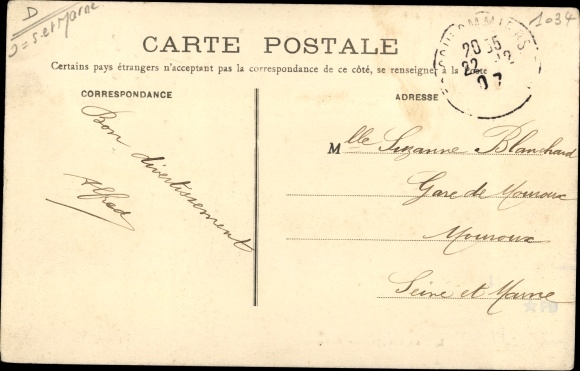 D
S. et Marne
1034
CARTE POSTALE
Certains pays étrangers n'acceptant pas la correspondance de ce côté, se renseigner à la Poste
COULOMMIERS
20 35
22
07
CORRESPONDANCE
ADRESSE
Bon divertissement
Alfred
Mlle Suzanne Blanchard
Gare de Mouroux
Mouroux
Seine et Marne